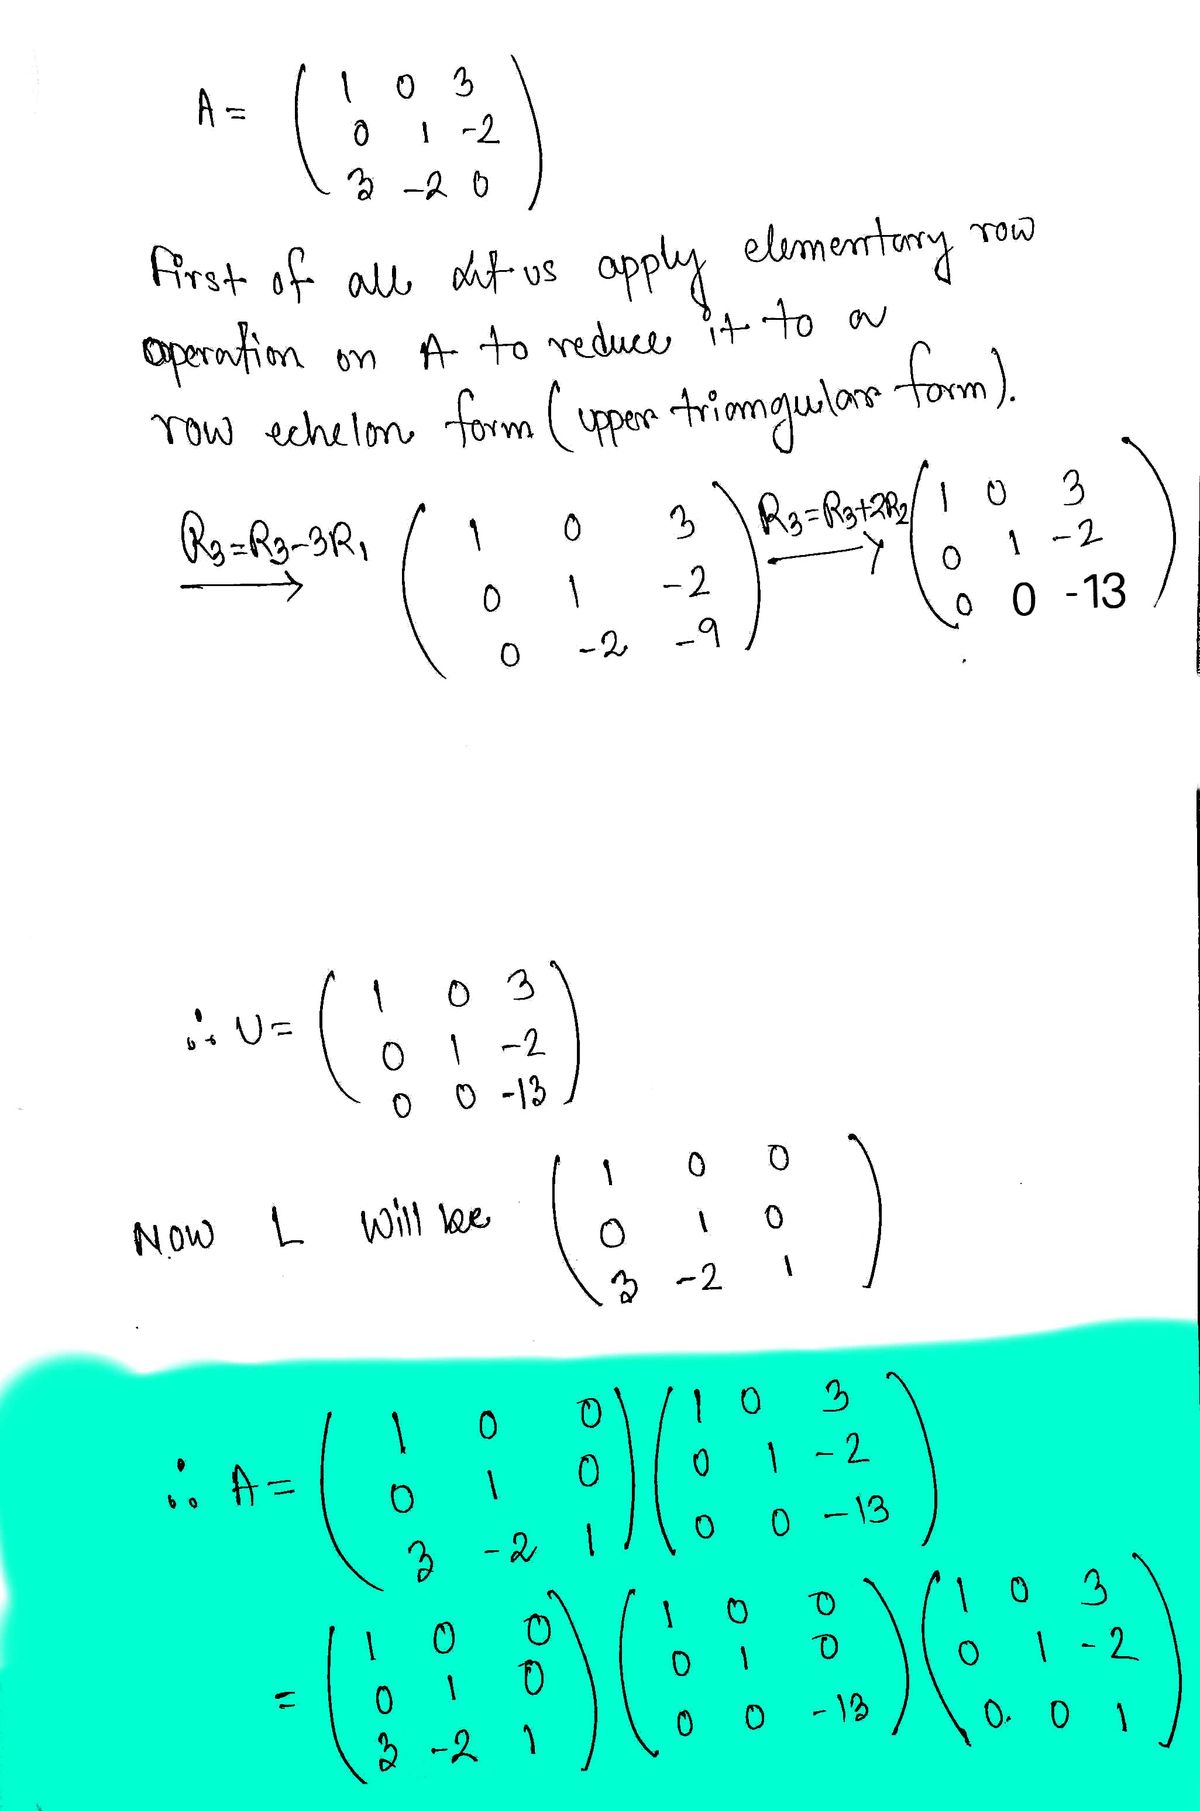 A = ( 1 0 3
0 1 -2
3 -2 0 )
First of all let us apply elementary row
operation on A to reduce it to a
row echelon form (upper triangular form).
R3=R3-3R1 → ( 1 0 3
0 1 -2
0 -2 -9 )
R3=R3+2R2 → ( 1 0 3
0 1 -2
0 0 -13 )
∴ U = ( 1 0 3
0 1 -2
0 0 -13 )
Now L will be ( 1 0 0
0 1 0
3 -2 1 )
∴ A = ( 1 0 0
0 1 0
3 -2 1 ) ( 1 0 3
0 1 -2
0 0 -13 )
= ( 1 0 0
0 1 0
3 -2 1 ) ( 1 0 0
0 1 0
0 0 -13 ) ( 1 0 3
0 1 -2
0. 0 1 )